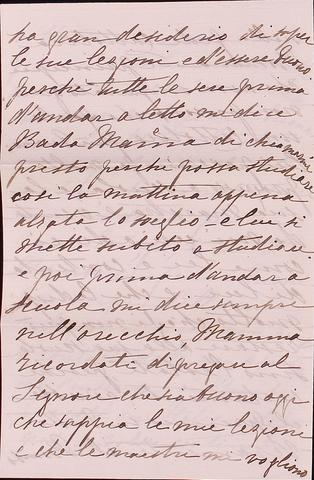 ha gran desiderio di saper
le sue lezioni e d'essere buono
perchè tutte le sere prima
d'andar a letto mi dice
Bada Mamma di chiamarmi
presto perchè possa studiare
così la mattina appena
alzata lo sveglio e lui si
mette subito a studiare
e poi prima d'andar a
scuola mi dice sempre
nell'orecchio, Mamma
ricordati di pregare il
Signore che sia buono oggi
che sappia le mie lezioni
e che le maestre mi vogliono